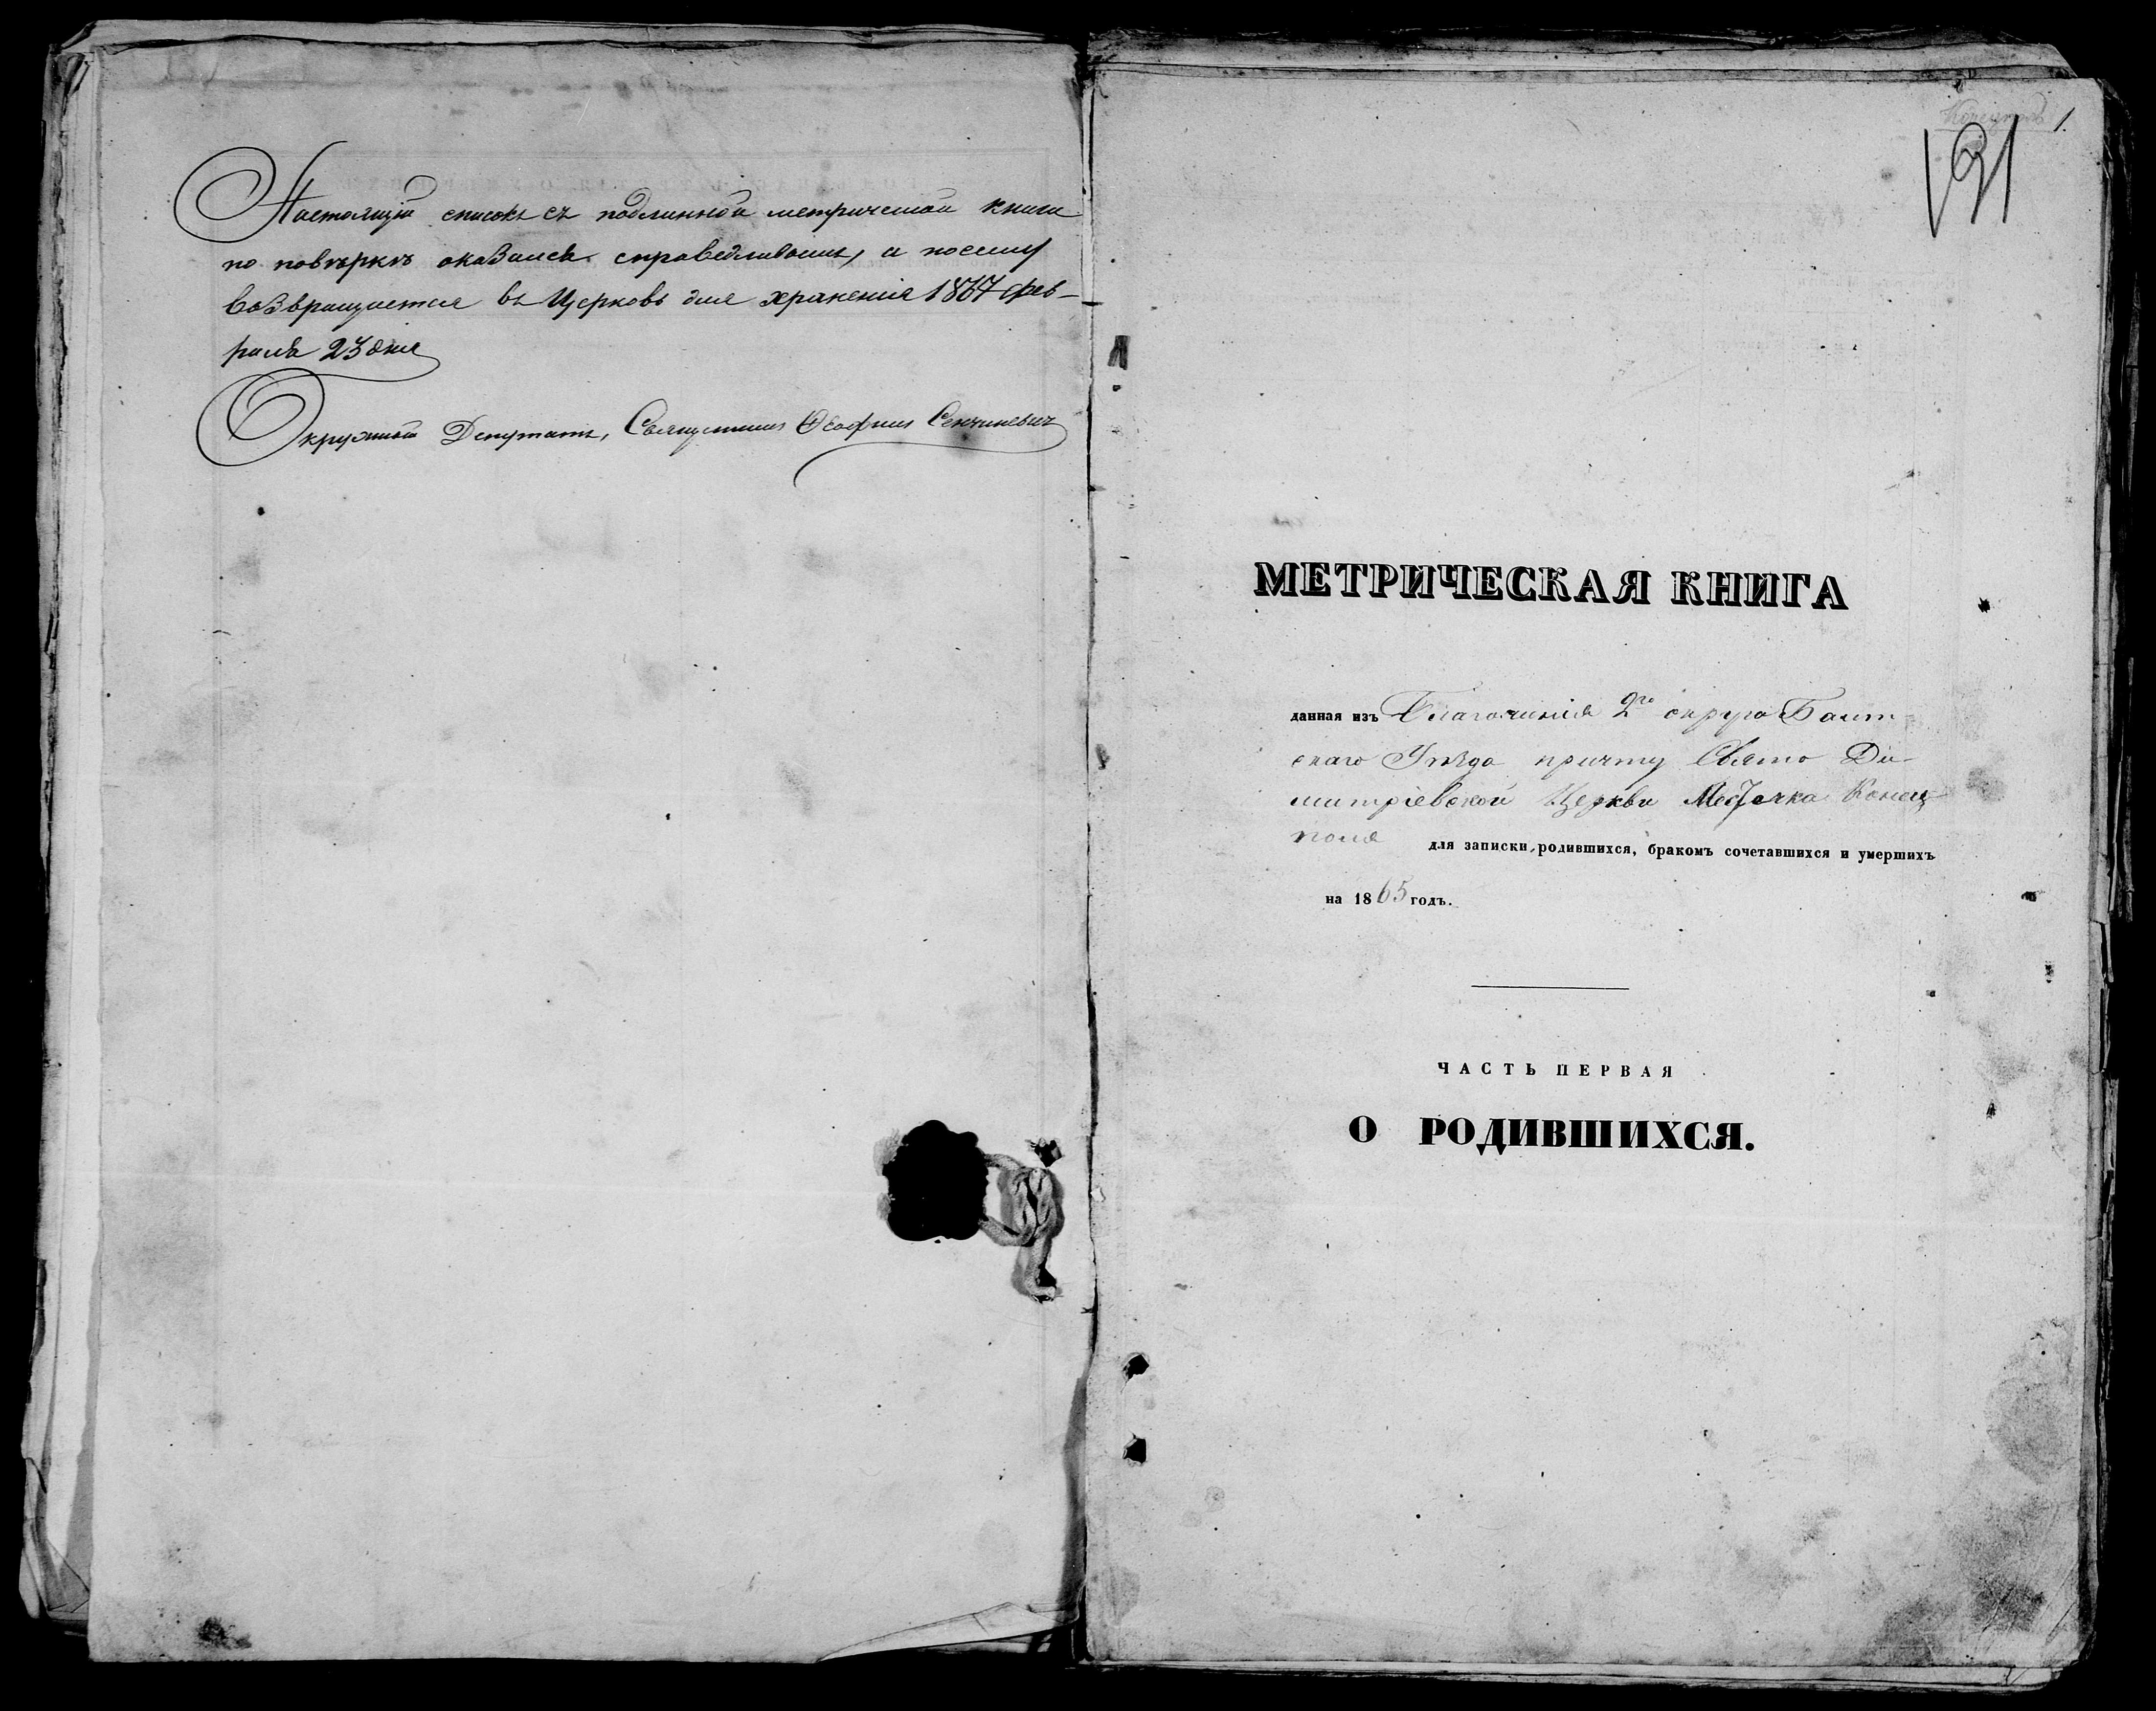 Настоящій списокъ съ подлинной метрической книги
по повѣркѣ оказался справедливымъ, а посему
возвращается въ Церковь для храненія 1867 фев-
раля 23 дня
Окружной Депутатъ, Священникъ Ѳеофилъ Сенчиневичъ
1.
191
МЕТРИЧЕСКАЯ КНИГА
данная изъ Благочинія 2го округа Балт-
скаго Уѣзда причту Свято Ди-
митріевской Церкви Местечка Конец-
поля для записки родившихся, бракомъ сочетавшихся и умершихъ
на 1865 годъ.
ЧАСТЬ ПЕРВАЯ
О РОДИВШИХСЯ.